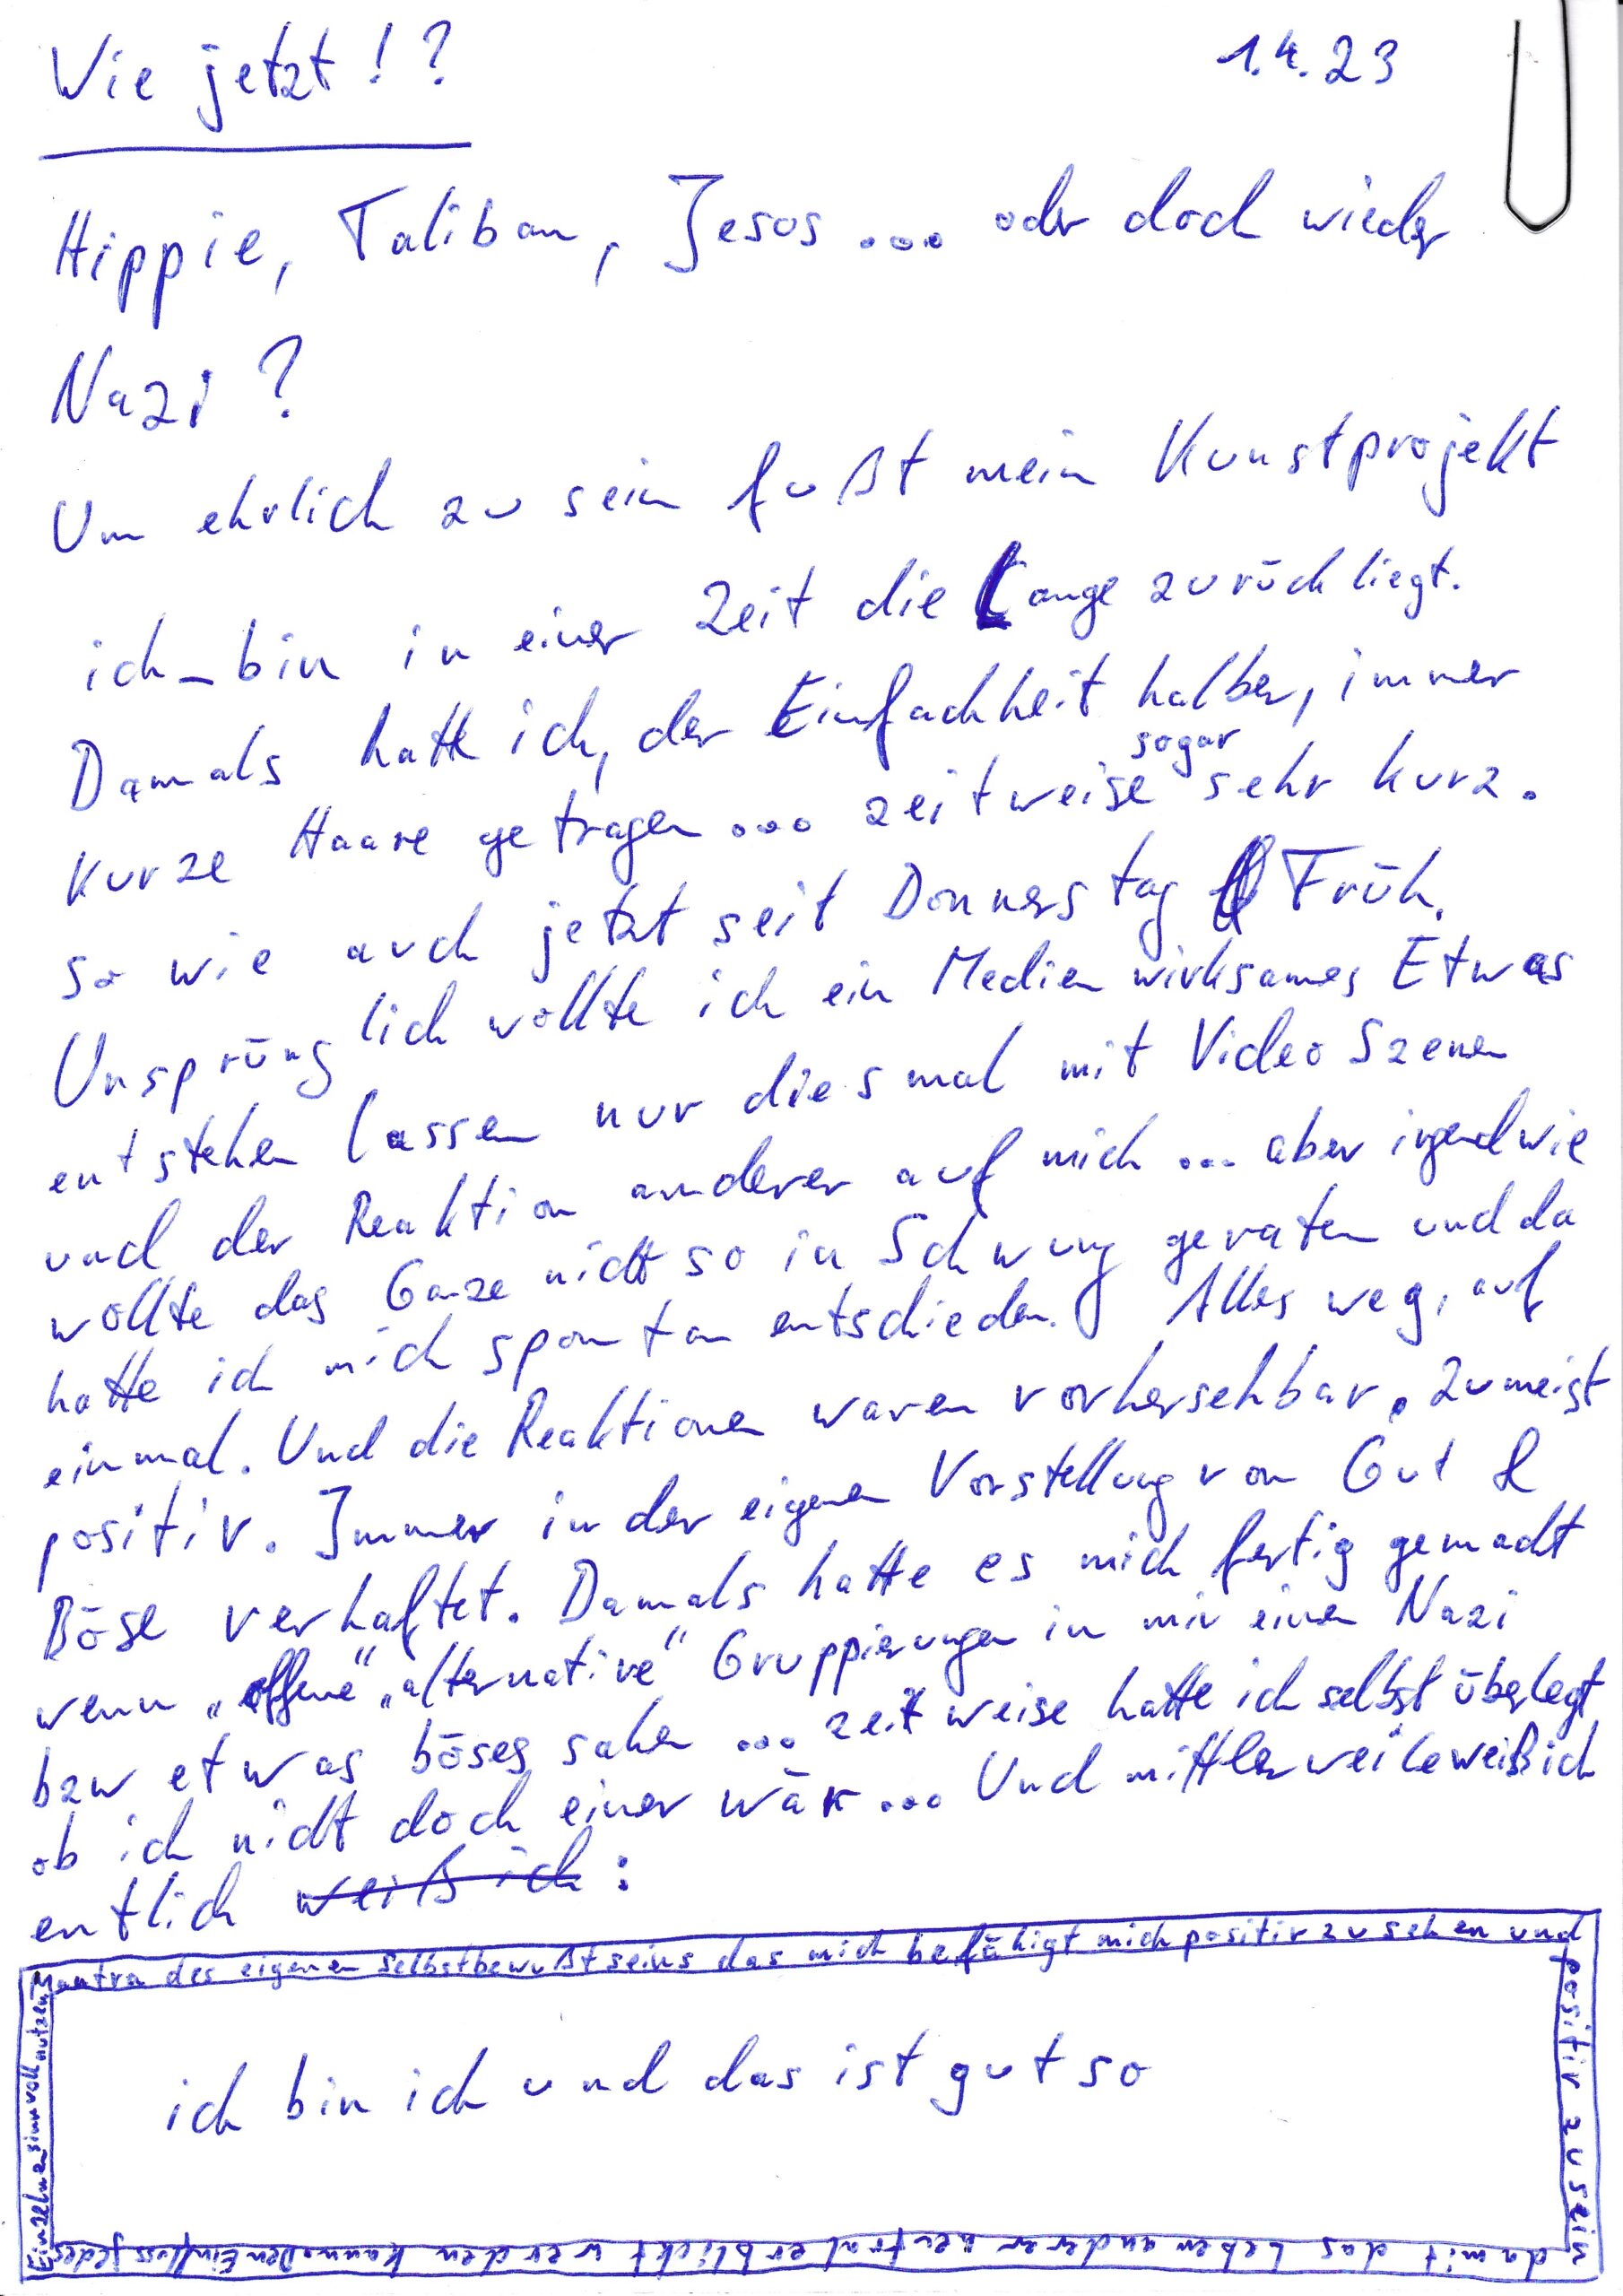 Wie jetzt!?
1.4.23
Hippie, Taliban, Jesos ... oder doch wieder
Nazi?
Um ehrlich zu sein fußt mein Kunstprojekt
ich_bin in einer Zeit die Lange zurück liegt.
Damals hatte ich, der Einfachheit halber, immer
kurze Haare getragen ... zeitweise sogar sehr kurz.
So wie auch jetzt seit Donnerstag Früh.
Ursprünglich wollte ich ein Medien wirksames Etwas
entstehen lassen nur diesmal mit Video Szenen
und der Reaktion anderer auf mich ... aber irgendwie
wollte das Ganze nicht so in Schwung geraten und da
hatte ich mich spontan entschieden. Alles weg, auf
einmal. Und die Reaktionen waren vorhersehbar. Zumeist
positiv. Immer in der eigenen Vorstellung von Gut &
Böse verhaftet. Damals hatte es mich fertig gemacht
wenn „offene" „alternative" Gruppierungen in mir einen Nazi
bzw etwas böses sahen ... zeitweise hatte ich selbst überlegt
ob ich nicht doch einer wär ... Und mittlerweile weiß ich
entlich weiß ich:
Mantra des eigenen Selbstbewußtseins das mich befähigt mich positiv zu sehen und
positiv zu sein
damit das Leben anderer neutral erblickt werden kann. Den Einfluss jedes
Einzelnen sinnvoll nutzen
ich bin ich und das ist gut so